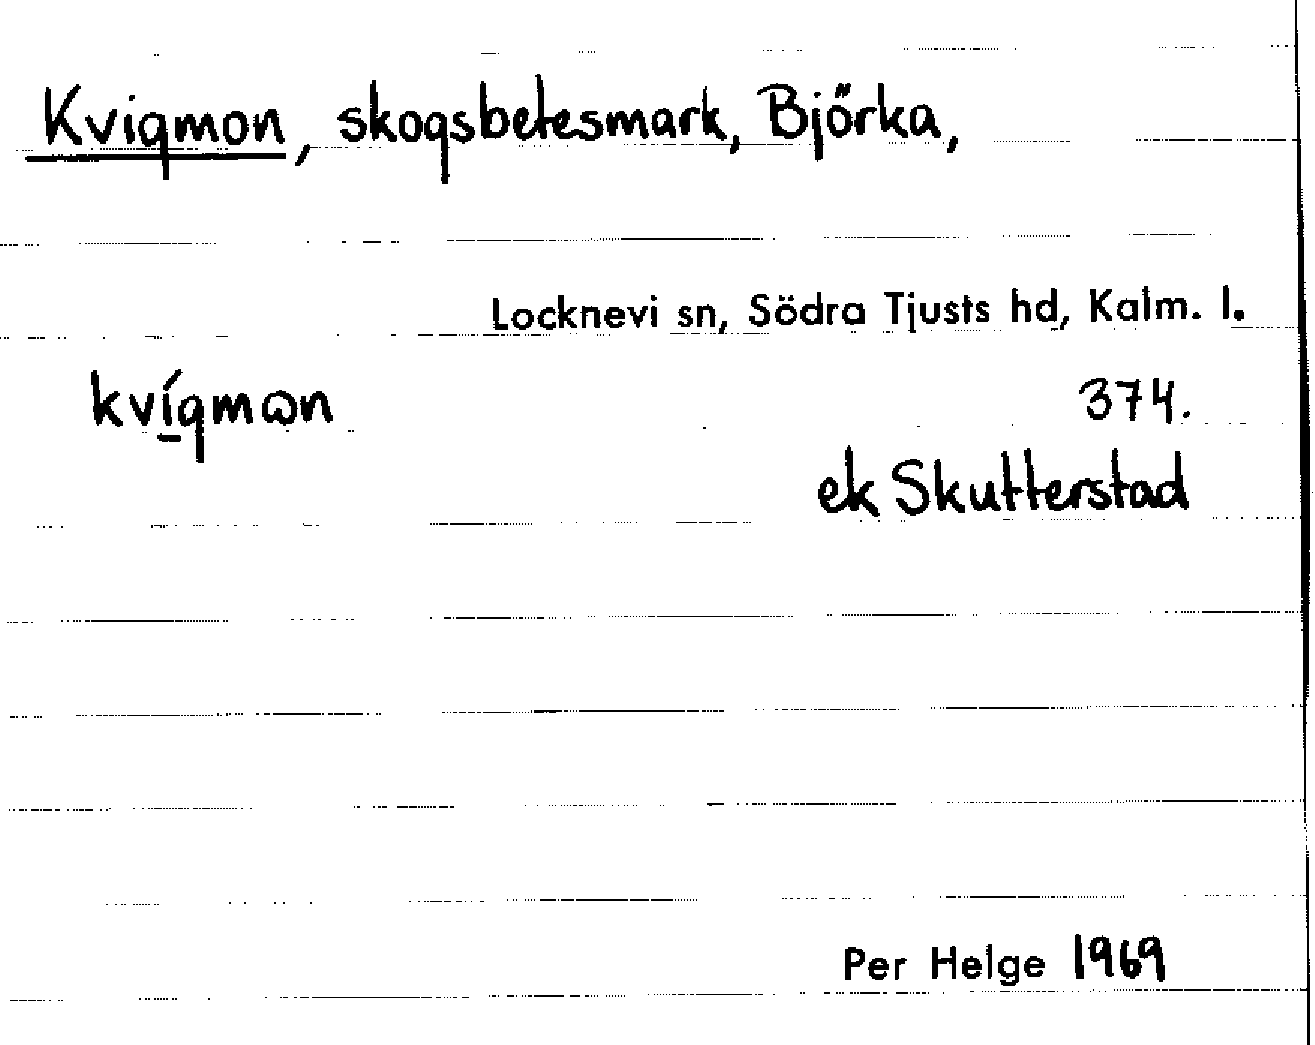 Kvigmon, skogsbetesmark, Björka,
Locknevi sn, Södra Tjusts hd, Kalm. l.
kví̱gmꞷn 374.
ek Skutterstad
Per Helge 1969